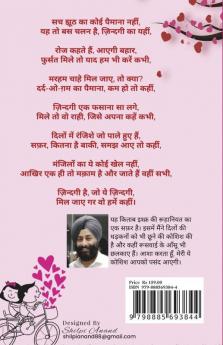 सच झूठ का कोई पैमाना नहीं,
यह तो बस चलन है, ज़िन्दगी का यहीं,
रोज कहते हैं, आएगी बहार,
फुर्सत मिले तो याद हम भी करें कभी,
मरहम चाहे मिल जाए, तो क्या?
दर्द-ओ-ग़म का पैमाना, कम हो तो कहीं,
ज़िन्दगी एक फसाना सा लगे,
मिले तो वो राही, जिसे अपना कहें कभी,
दिलों में रंजिशे जो पाले हुए हैं,
सफ़र, कितना है बाकी, समझ आए तो कभी,
मंजिलों का ये कोई खेल नहीं,
आखिर एक ही तो मक़ाम है और जाते हैं वहीं सभी,
ज़िन्दगी है, जो ये ज़िन्दगी,
मिल जाए गर वो हमें कहीं।
यह किताब इश्क़ की रूहानियत का
एक सार है। इसमें मैंने दिलों की
धड़कनों को भी छूने की कोशिश की
है और कहीं रूसवाई के आँसू भी
छलकाए हैं। आशा करता हूँ, मेरी ये
कोशिश आपको पसंद आएगी।
Price Rs 199.00
ISBN 979-888569384-4
9 798885 693844
Designed By
Shilpi Anand
shilpianand88@gmail.com